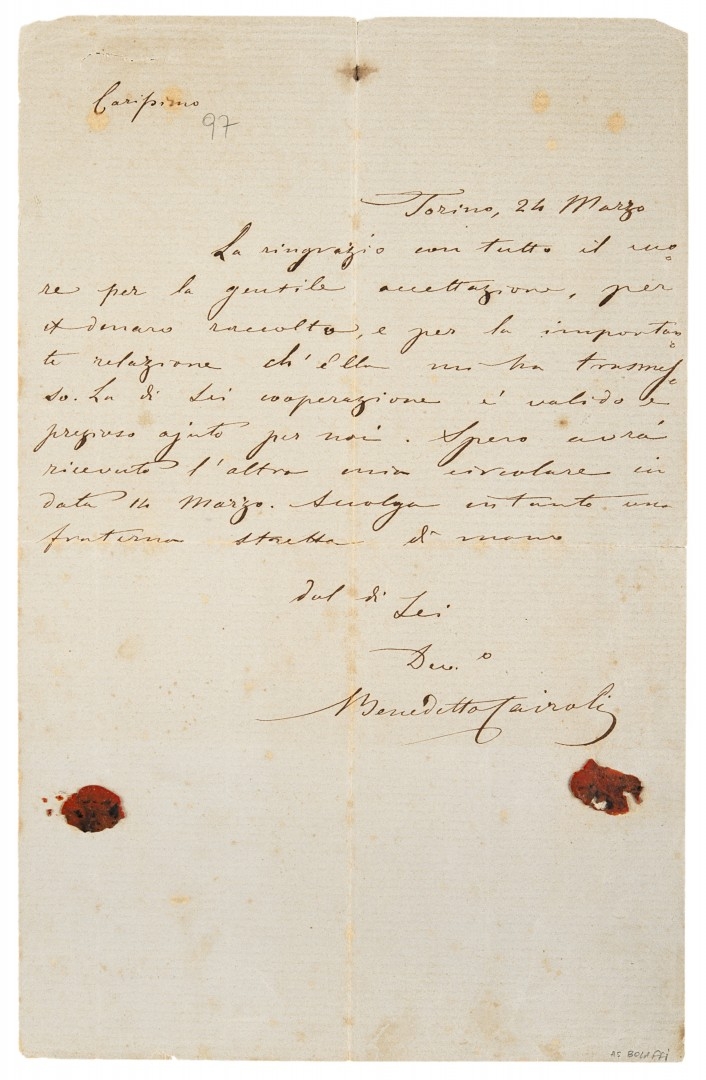 Carissimo
97
Torino, 24 Marzo
La ringrazio con tutto il cuo=
re per la gentile accettazione, per
il denaro raccolto, e per la importan=
te relazione ch'Ella mi ha trasmes=
so. La di Lei cooperazione é valido e
prezioso ajuto per noi. Spero avrá
ricevuto l'altra mia circolare in
data 14 Marzo. Accolga intanto una
fraterna stretta di mano
dal di Lei
Dev.o
Benedetto Cairoli
AS BOLAFFI